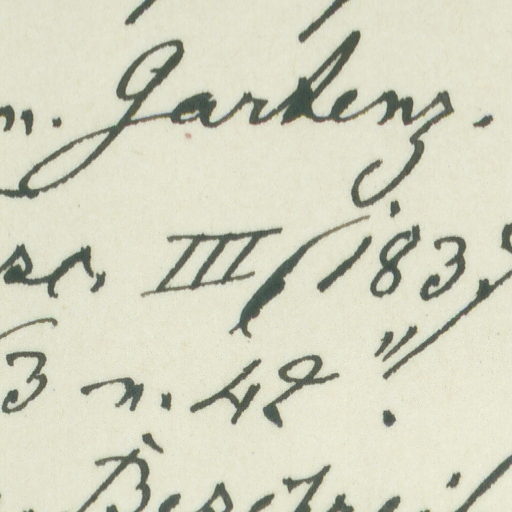 n. Gartenz.
sc. III (1839
3 n. 42".
Beschrei